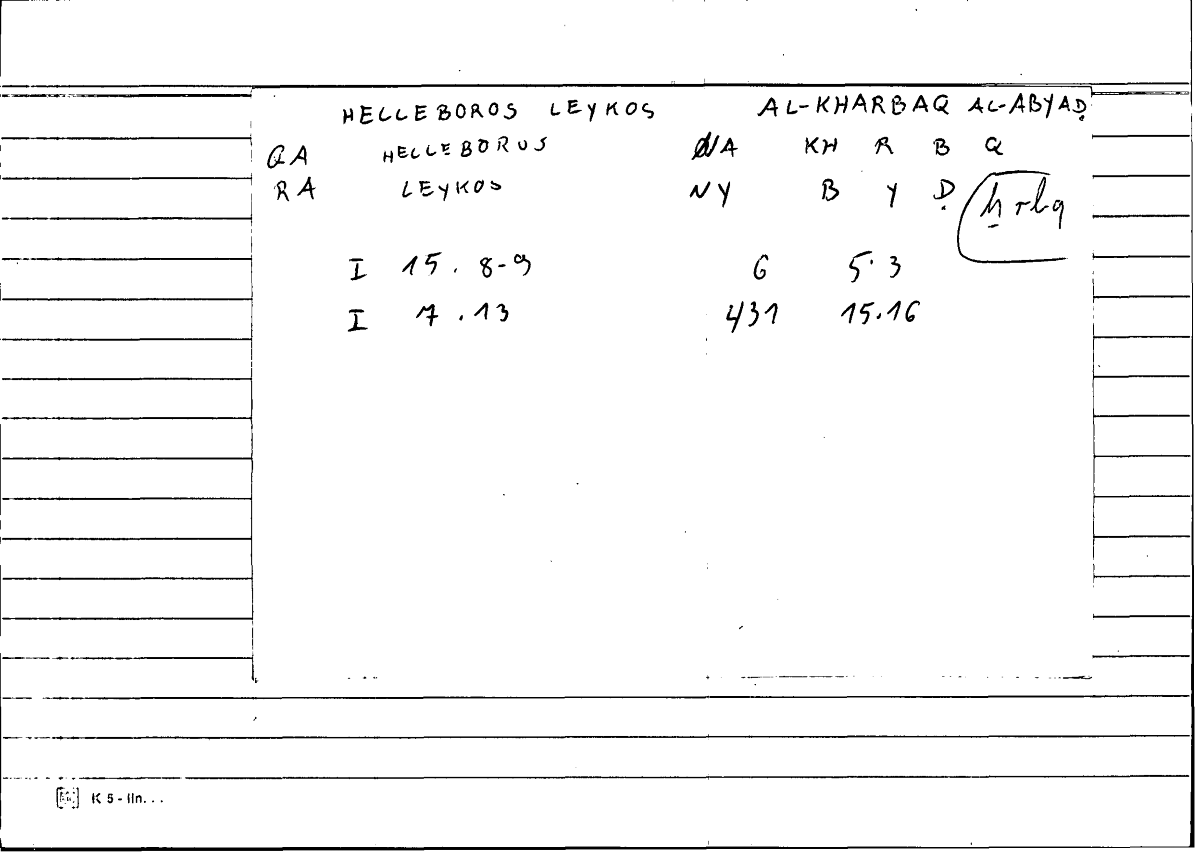 HELLEBOROS LEYKOS AL-KHARBAQ AL-ABYAḌ
QA HELLEBORUS NA KH R B Q
RA LEYKOS NY B Y Ḍ ḫrbq
I 15. 8-9 6 5.3
I 7.13 431 15.16
K 5 - lin. . .